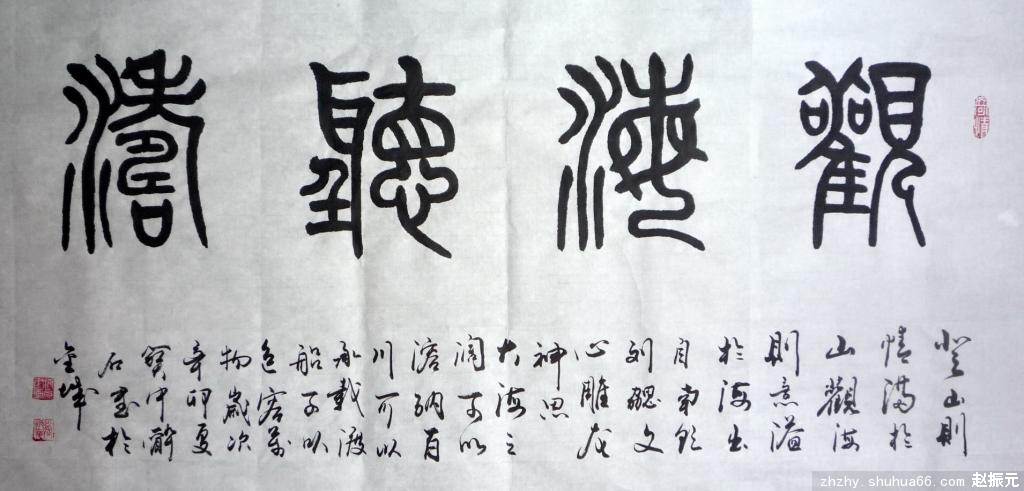 觀海聽濤
登山則
情滿於
山觀海
則意溢
於海出
自南
刘勰文
心雕龙
神思
大海之
阔可以
溶納百
川可以
承載渡
船可以
包容萬
物歲次
辛卯夏
中
石書於
金城
zhzhy.shuhua66.com 赵振元